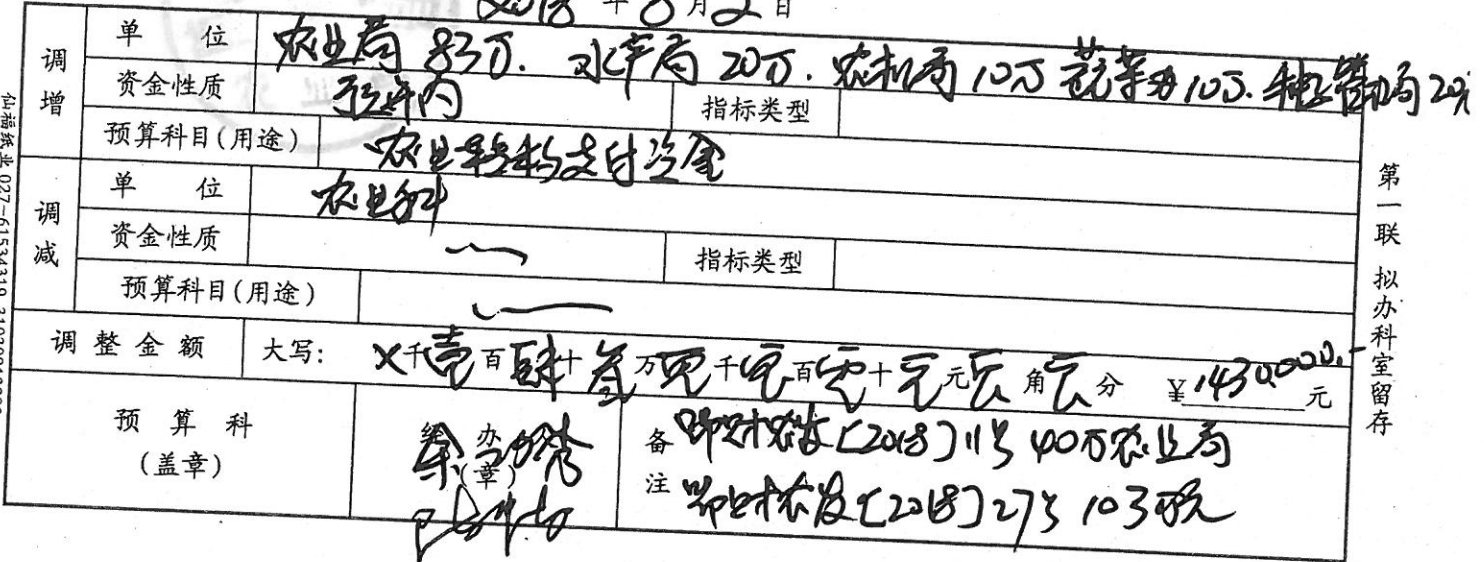 2018年8月2日
调增 单位 农业局83万.水产局20万.农机局10万 蔬菜办10万.种子管理局20万
资金性质 预算内 指标类型
预算科目(用途) 农业转移支付资金
调减 单位 农业科
资金性质 指标类型
预算科目(用途)
调整金额 大写: X千壹百肆十叁万零千零百零十元元零角零分 ¥1430000.-元
预算科(盖章) 经办(章) 备注 鄂财农发[2018]11号 40万农业局
鄂财农发[2018]27号 103万元
第一联 拟办科室留存
仙福纸业 027-61534319